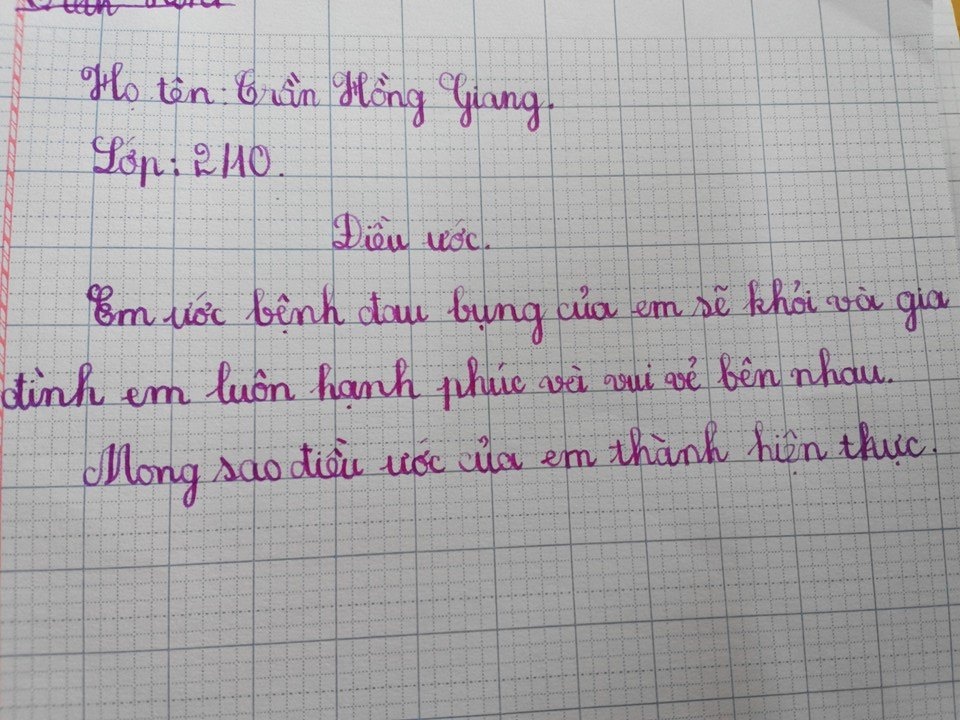 Họ tên: Trần Hồng Giang.
Lớp: 2/10.
Điều ước.
Em ước bệnh đau bụng của em sẽ khỏi và gia
đình em luôn hạnh phúc và vui vẻ bên nhau.
Mong sao điều ước của em thành hiện thực.